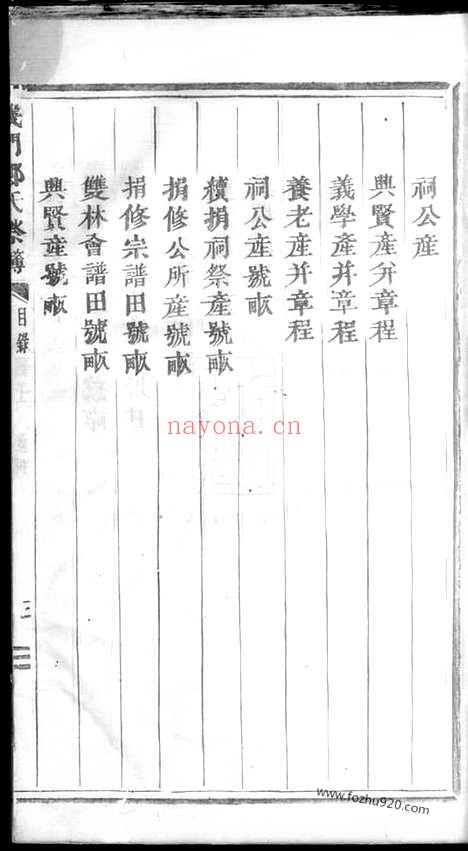 祠公產
興賢產并章程
義學產并章程
養老產并章程
祠公產號畝
續捐祠祭產號畝
捐修公所產號畝
捐修宗譜田號畝
雙林會譜田號畝
興賢產號畝
義門鄭氏祭簿
目錄
三
nayona.cn
www.fozhu920.com